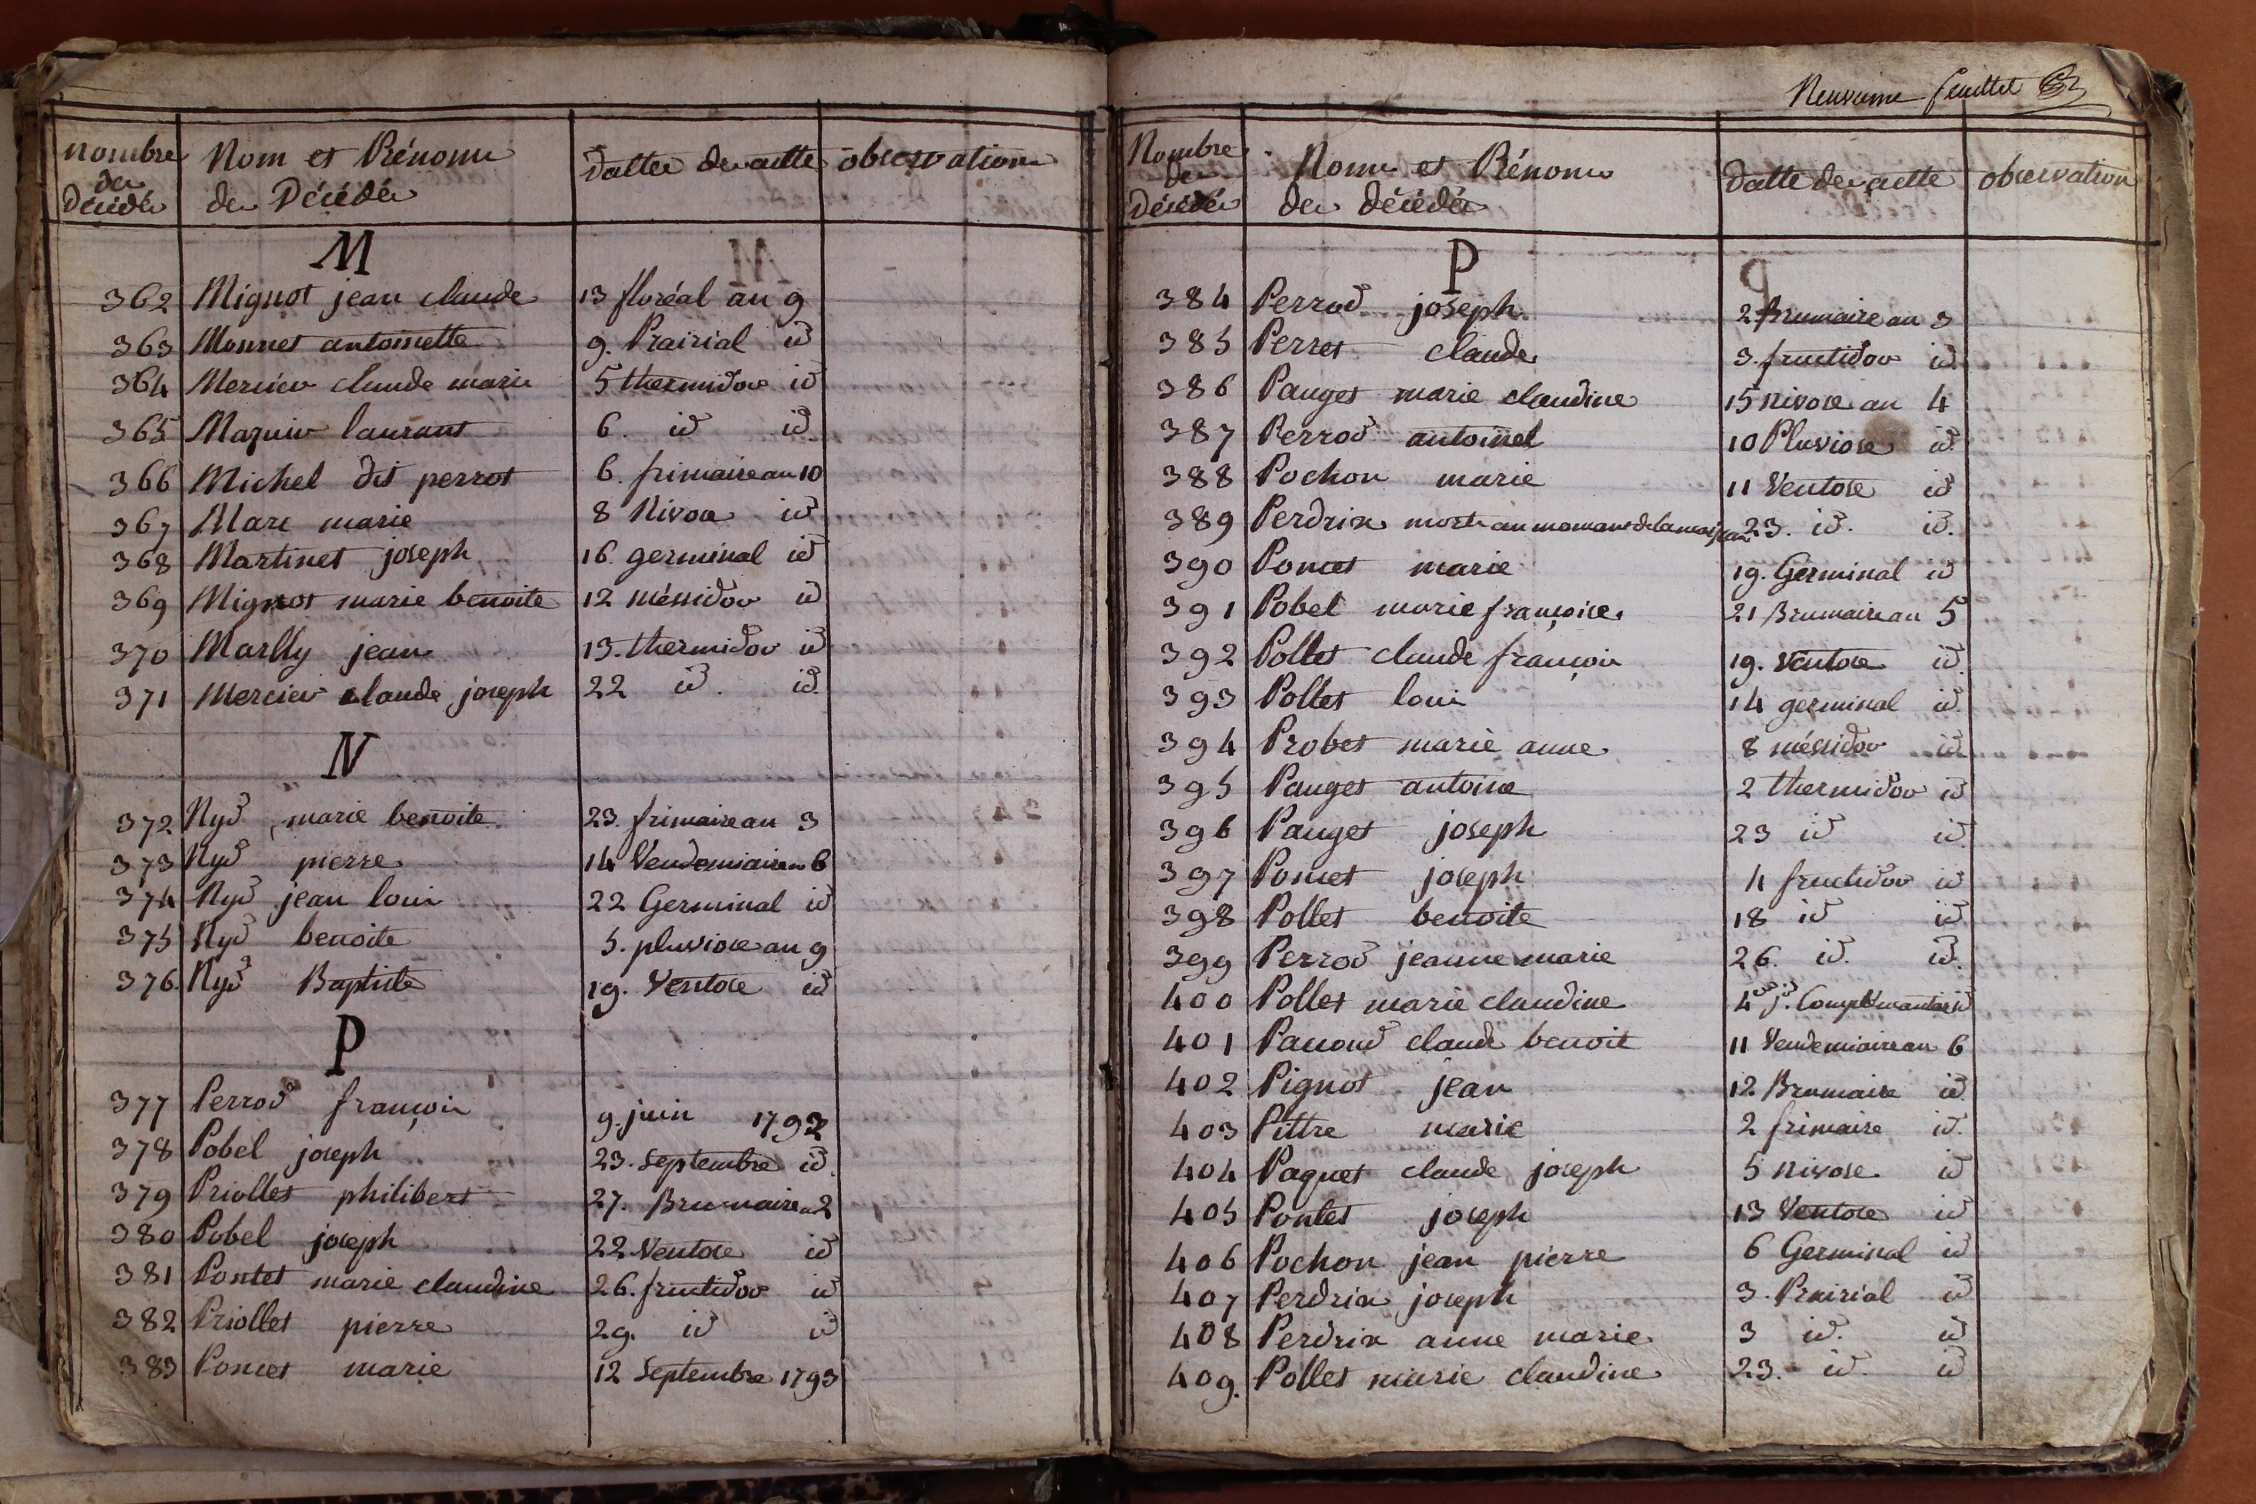 nombre des Décédés | Nom et Prénoms des Décédés | dattes des actes | observations
M
362 Mignot jean claude 13 floréal an 9
363 Monnet antoinette 9. Prairial id
364 Mercier claude marie 5 thermidor id
365 Maznier laurant 6. id id
366 Michel dit perrot 6. frimaire an 10
367 Marc marie 8 Nivose id
368 Martinet joseph 16 germinal id
369 Mignot marie benoite 12 méssidor id
370 Marlly jean 13. thermidor id
371 Mercier claude joseph 22 id. id.
N
372 Nyd marie benoite 23. frimaire an 3
373 Nyd pierre 14 Vendemiaire an 6
374 Nyd jean louis 22 Germinal id
375 Nyd benoite 5. pluviose an 9
376. Nyd Baptiste 19. Ventose id
P
377 Perrod françois 9. juin 1792
378 Pobel joseph 23. septembre id.
379 Priollet philibert 27. Brumaire an 2
380 Pobel joseph 22 Ventose id
381 Pontet marie claudine 26. fructidor id
382 Priollet pierre 29. id id
383 Poncet marie 12 septembre 1793
Neuvieme feuillet
Nombre des Décédés | Noms et Prénoms des décédés | datte des actes | observation
P
384 Perrod joseph 2 Brumaire an 3
385 Perret claude 3. fructidor id
386 Pauget marie claudine 15 nivose an 4
387 Perrod antoinet 10 Pluviose id
388 Pochon marie 11 Ventose id
389 Perdrix morte au momant de la naissan 23. id. id.
390 Poncet marie 19. Germinal id
391 Pobel marie françoise 21 Brumaire an 5
392 Pollet claude françois 19. ventose id
393 Pollet louis 14 germinal id
394 Probet marie anne 8 méssidor id
395 Pauget antoine 2 thermidor id
396 Pauget joseph 23 id id
397 Poncet joseph 4 fructidor id
398 Pollet benoite 18 id id
399 Perrod jeanne marie 26. id. id.
400 Pollet marie claudine 4 j. Complémantaire id
401 Paccoud claude benoit 11 Vendemiaire an 6
402 Pignot jean 12 Brumaire id
403 Pittre marie 2 frimaire id.
404 Paquet claude joseph 5 nivose id
405 Pontet joseph 13 Ventose id
406 Pochon jean pierre 6 Germinal id
407 Perdrix joseph 3. Prairial id
408 Perdrix anne marie 3 id. id
409. Pollet marie claudine 23. id id